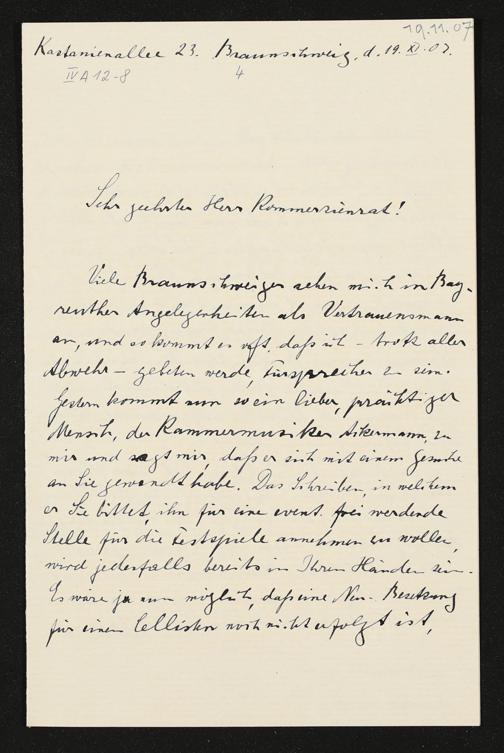 19.11.07
Kastanienallee 23. Braunschweig, d. 19. XI. 07.
IV A 12-8
4
Sehr geehrter Herr Kommerzienrat!
Viele Braunschweiger sehen mich in Bay-
reuther Angelegenheiten als Vertrauensmann
an, und so kommt es oft, daß ich – trotz aller
Abwehr – gebeten werde, Fürsprecher zu sein.
Gestern kommt nun so ein lieber, prächtiger
Mensch, der Kammermusiker Ackermann, zu
mir und sagt mir, daß er sich mit einem Gesuche
an Sie gewandt habe. Das Schreiben, in welchem
er Sie bittet, ihn für eine event. frei werdende
Stelle für die Festspiele annehmen zu wollen,
wird jedenfalls bereits in Ihren Händen sein.
Es wäre ja nun möglich, daß eine Neu-Besetzung
für einen Cellisten noch nicht erfolgt ist,